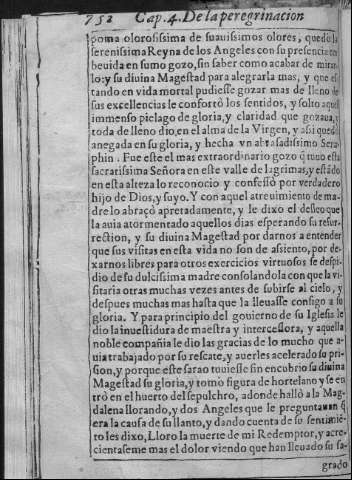 752 Cap. 4. De la peregrinacion
poma olorosissima de suauissimos olores, quedò la
serenissima Reyna de los Angeles con su presencia em
beuida en sumo gozo, sin saber como acabar de mirar
lo: y su diuina Magestad para alegrarla mas, y que es
tando en vida mortal pudiesse gozar mas de lleno de
sus excellencias le confortò los sentidos, y solto aquel
immenso pielago de gloria, y claridad que gozaua, y
toda de lleno dio, en el alma de la Virgen, y assi quedò
anegada en su gloria, y hecha vn abrasadissimo Sera
phin. Fue este el mas extraordinario gozo q̃ tuuo esta
sacratissima Señora en este valle de lagrimas, y estãdo
en esta alteza lo reconocio y confessò por verdadero
hijo de Dios, y suyo. Y con aquel atreuimiento de ma-
dre lo abraçò apretadamente, y le dixo el desseo que
la auia atormentado aquellos dias esperando su resur-
rection, y su diuina Magestad por darnos a entender
que sus visitas en esta vida no son de asiento, por de-
xarnos libres para otros exercicios virtuosos se despi-
dio de su dulcissima madre consolandola con que la vi-
sitaria otras muchas vezes antes de subirse al cielo, y
despues muchas mas hasta que la lleuasse consigo a su
gloria. Y para principio del gouierno de su Iglesia le
dio la inuestidura de maestra y intercessora, y aquella
noble compañia le dio las gracias de lo mucho que a-
uia trabajado por su rescate, y auerles acelerado su pri-
sion, y porque este sarao tuuiesse fin encubrio su diuina
Magestad su gloria, y tomo figura de hortelano y se en
trò en el huerto del sepulchro, adonde hallò a la Mag-
dalena llorando, y dos Angeles que le preguntauan q̃
era la causa de su llanto, y dando cuenta de su sentimiẽ-
to les dixo, Lloro la muerte de mi Redemptor, y acre-
cientaseme mas el dolor viendo que han lleuado su sa-
grado